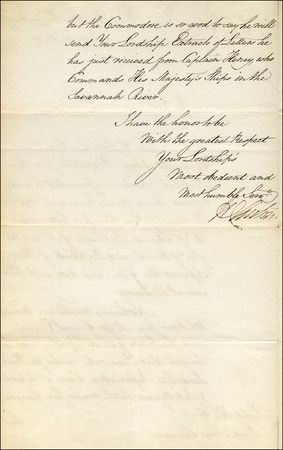 but the Commodore is so good to say he will
send Your Lordship Extracts of Letters he
has just received from Captain Henry who
Commands His Majesty's Ships in the
Savannah River.
I have the honor to be
With the greatest Respect
Your Lordships
Most obedient and
Most humble Serv.t